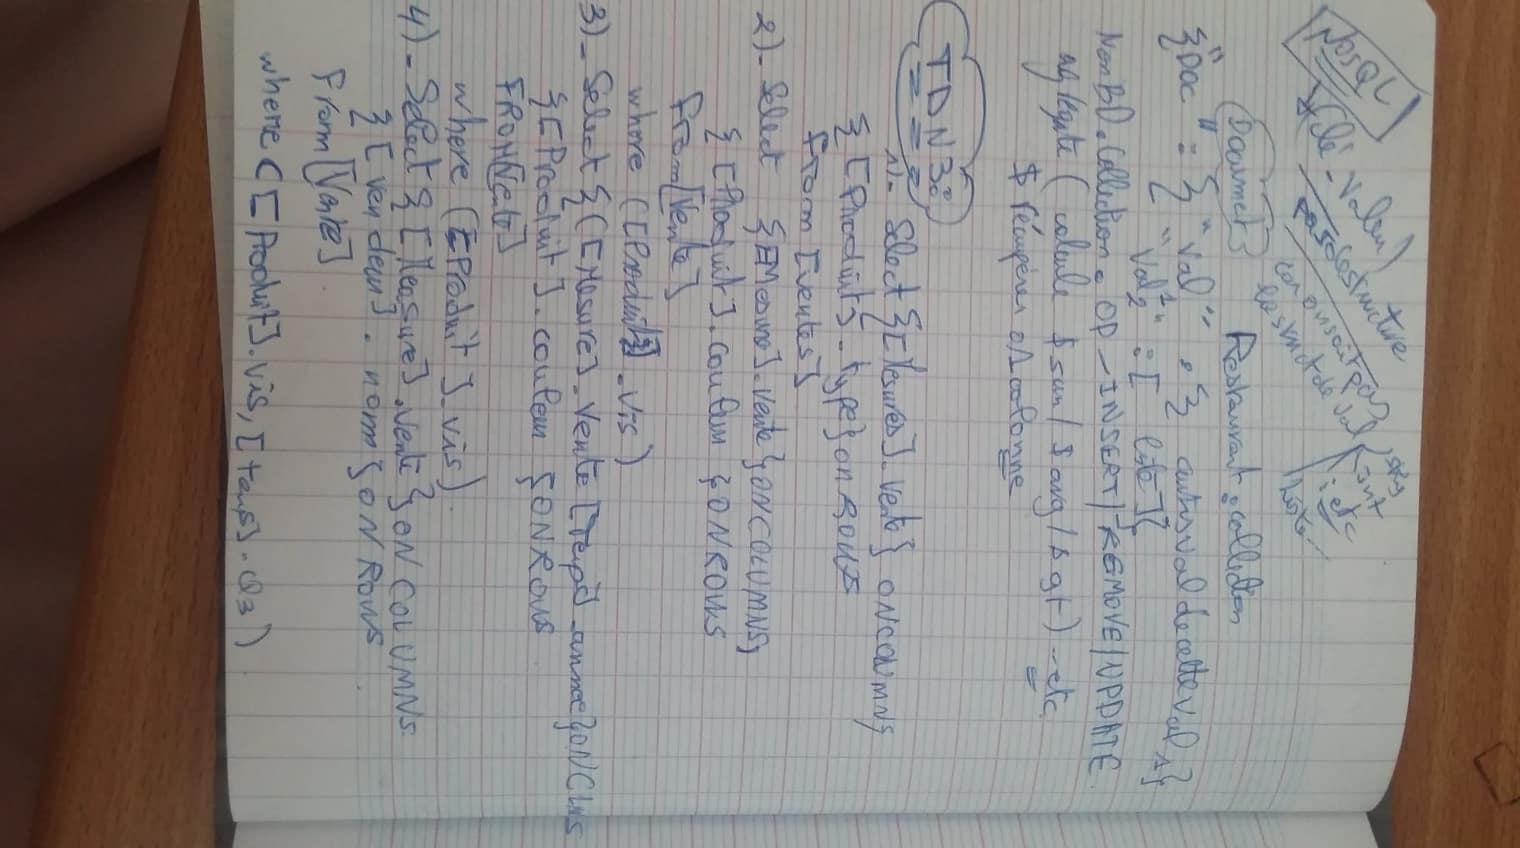 NOSQL
Clé-Valeur
pas de structure
on ensuit pas
str
int
etc
Document
Restaurant: collection
"Doc" : { "Val1" : {
autres val de cette val 1}
{
"Val2" : [ liste ]}
NomBD.Collection.OP_INSERT/REMOVE/UPDATE
agrégate (calcule $sum/$avg/$gt)...etc
$ récupérer d1 colonne
TD N3:
1)- Select {[Mesures].Vente} ON COLUMNS
{[Produit].type} on ROWS
From [Ventes]
2)- Select {[Mesures].Vente} ON COLUMNS,
{[Produit].couleur} ON ROWS
From [Vente]
where ([Produit].vis)
3)- Select {([Mesure].Vente [Temps].annee} ON CLMS
{[Produit].couleur} ON ROWS
FROM [Vente]
where ([Produit].vis)
4)- Select {[Measure].Vente} ON COLUMNS
{[vendeur].nom} ON ROWS
From [Vente]
where ([Produit].vis, [temps].Q3)